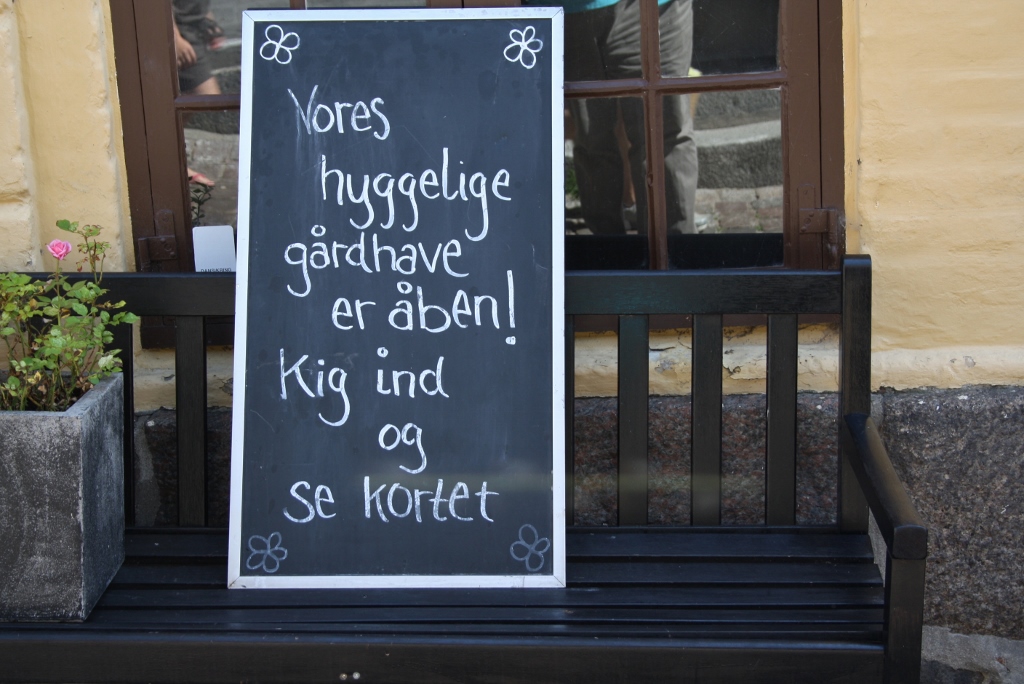 Vores
hyggelige
gårdhave
er åben!
Kig ind
og
se kortet